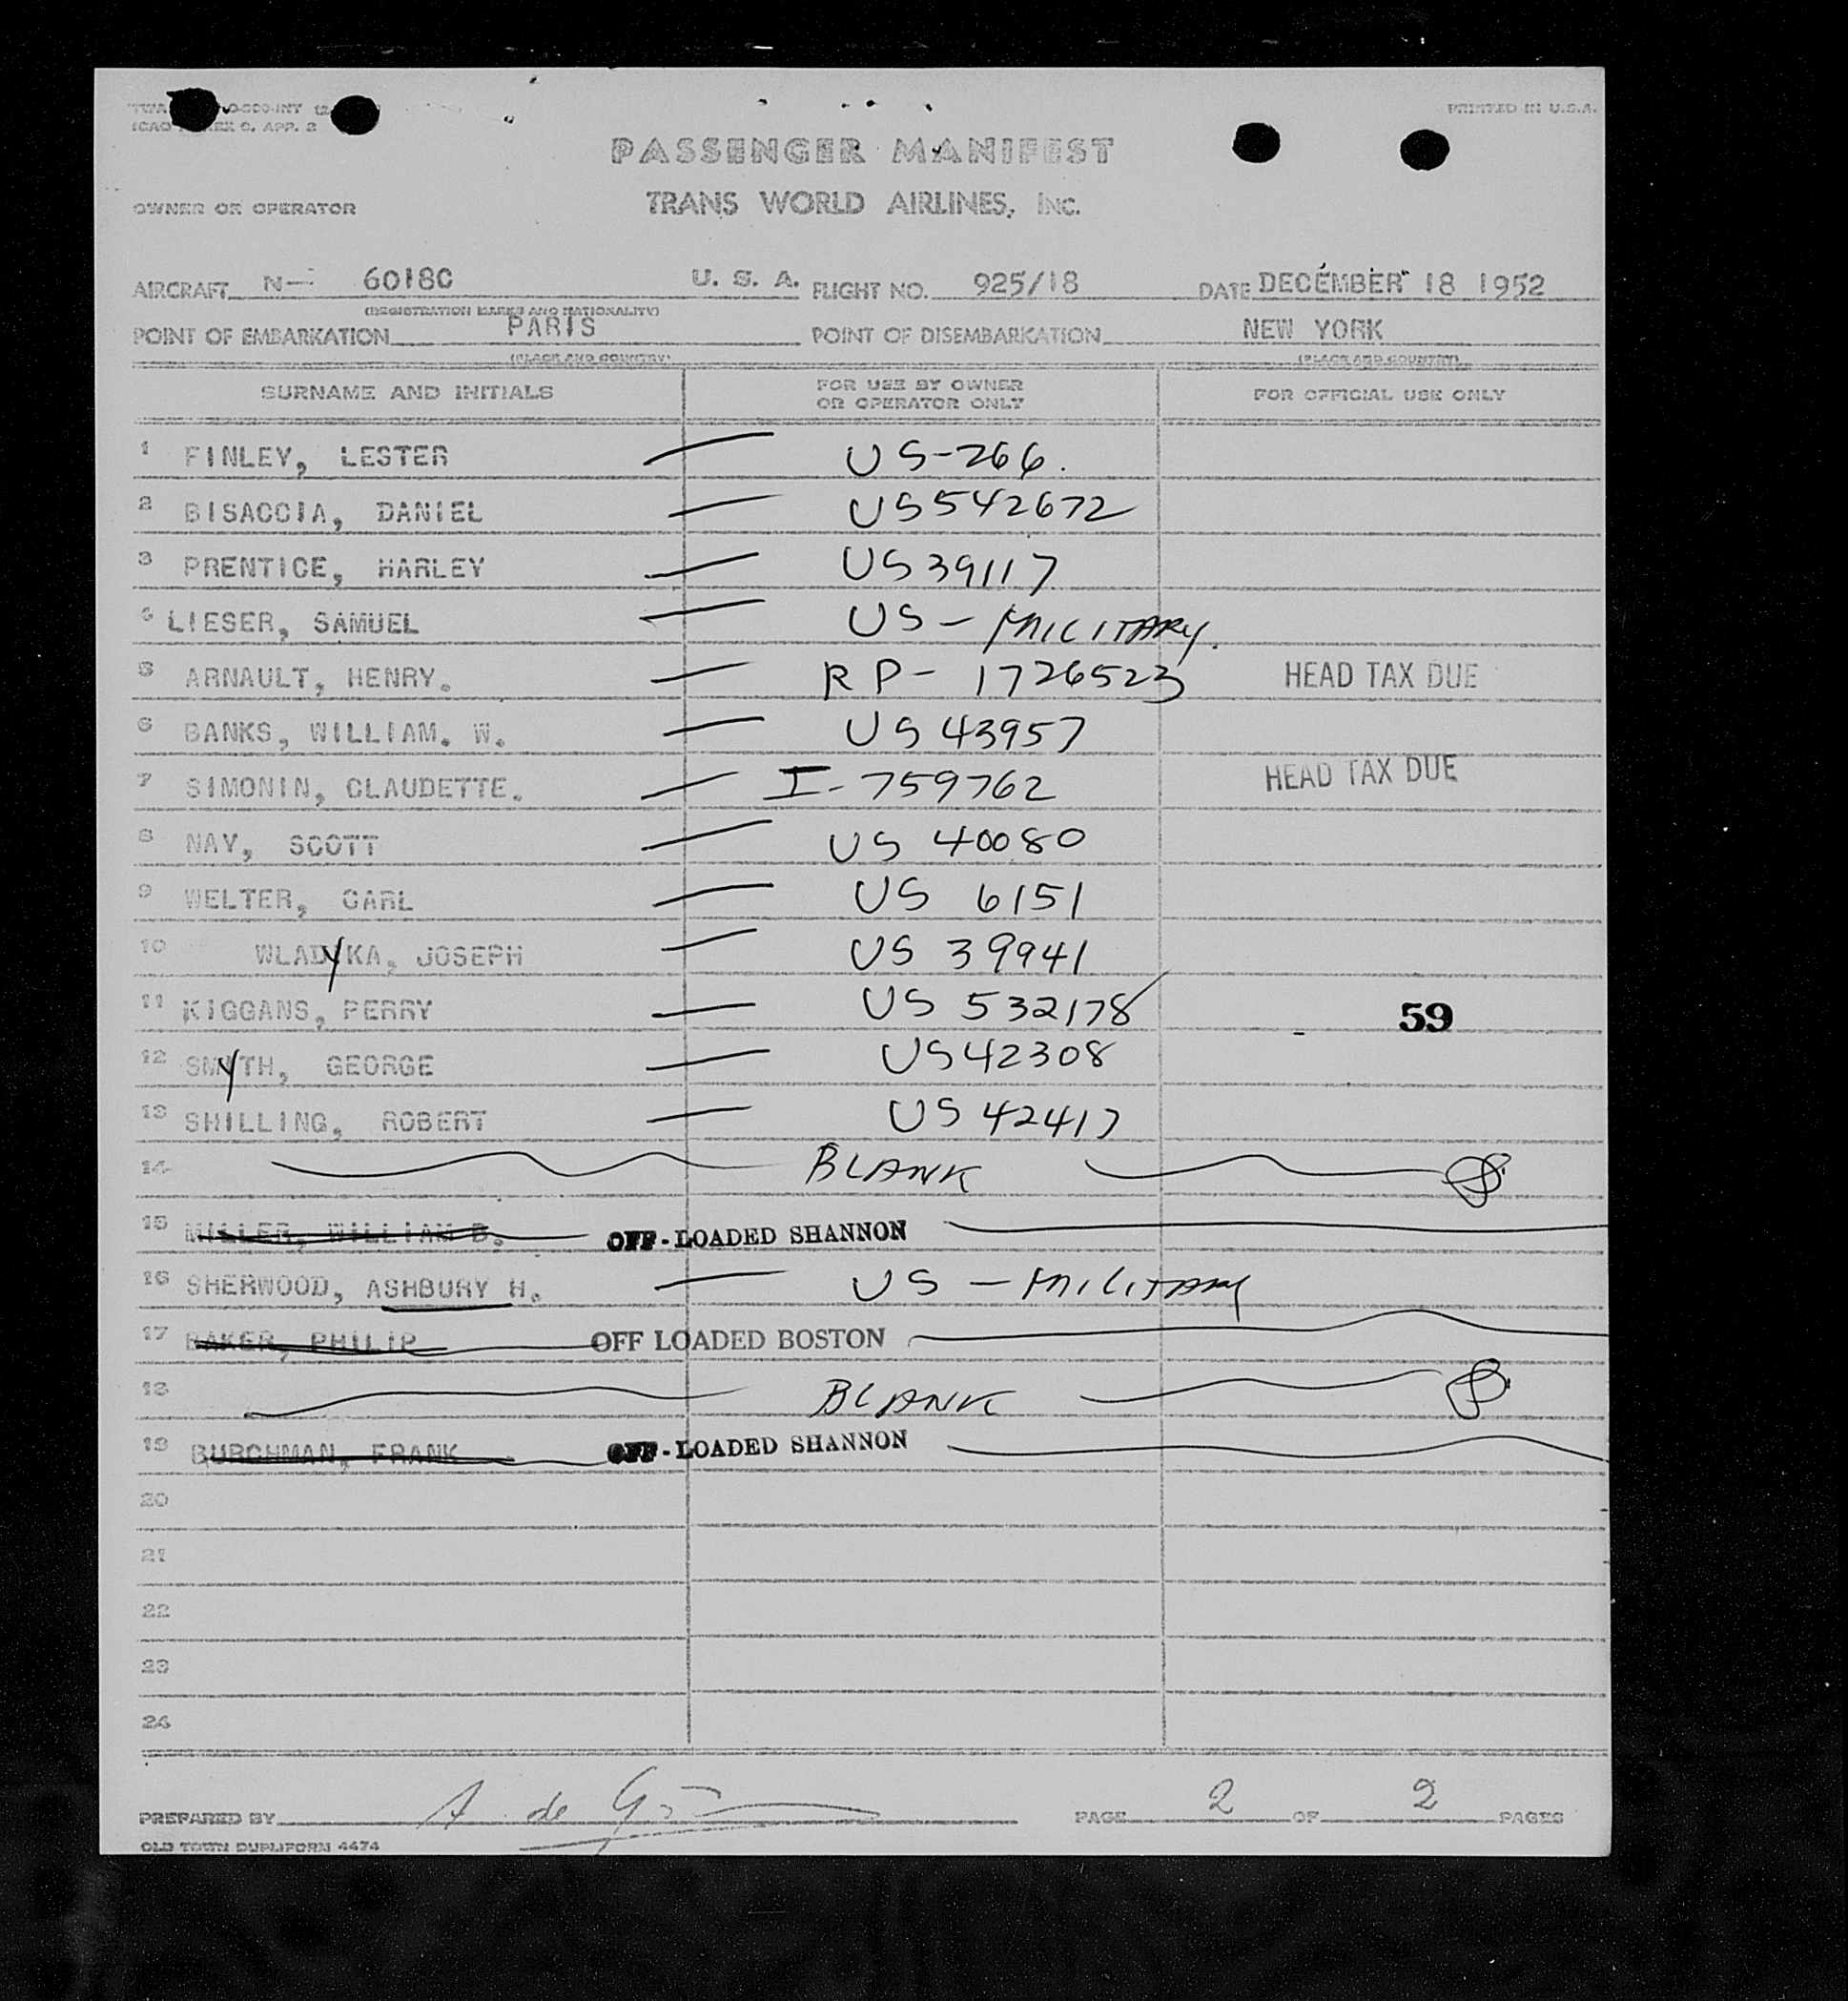 PRINTED IN U.S.A.
PASSENGER MANIFEST
OWNER OR OPERATOR TRANS WORLD AIRLINES, INC.
AIRCRAFT N- 6018C U. S. A. FLIGHT NO. 925/18 DATE DECEMBER 18 1952
(REGISTRATION MARKS AND NATIONALITY)
POINT OF EMBARKATION PARIS POINT OF DISEMBARKATION NEW YORK
(PLACE AND COUNTRY) (PLACE AND COUNTRY)
SURNAME AND INITIALS FOR USE BY OWNER OR OPERATOR ONLY FOR OFFICIAL USE ONLY
1 FINLEY, LESTER — US-266.
2 BISACCIA, DANIEL — US542672
3 PRENTICE, HARLEY — US39117
4 LIESER, SAMUEL — US - MILITARY.
5 ARNAULT, HENRY. — RP- 1726523 HEAD TAX DUE
6 BANKS, WILLIAM. W. — US 43957
7 SIMONIN, CLAUDETTE. — I-759762 HEAD TAX DUE
8 NAY, SCOTT — US 40080
9 WELTER, CARL — US 6151
10 WLADYKA, JOSEPH — US 39941
11 KIGGANS, PERRY — US 532178 59
12 SMYTH, GEORGE — US42308
13 SHILLING, ROBERT — US 42417
14 BLANK
15 MILLER, WILLIAM B. OFF-LOADED SHANNON
16 SHERWOOD, ASHBURY H. — US - MILITARY
17 BAKER, PHILIP OFF LOADED BOSTON
18 BLANK
19 BURCHMAN, FRANK OFF-LOADED SHANNON
20
21
22
23
24
PREPARED BY A de PAGE 2 OF 2 PAGES
OLD TOWN DUPLIFORM 4474